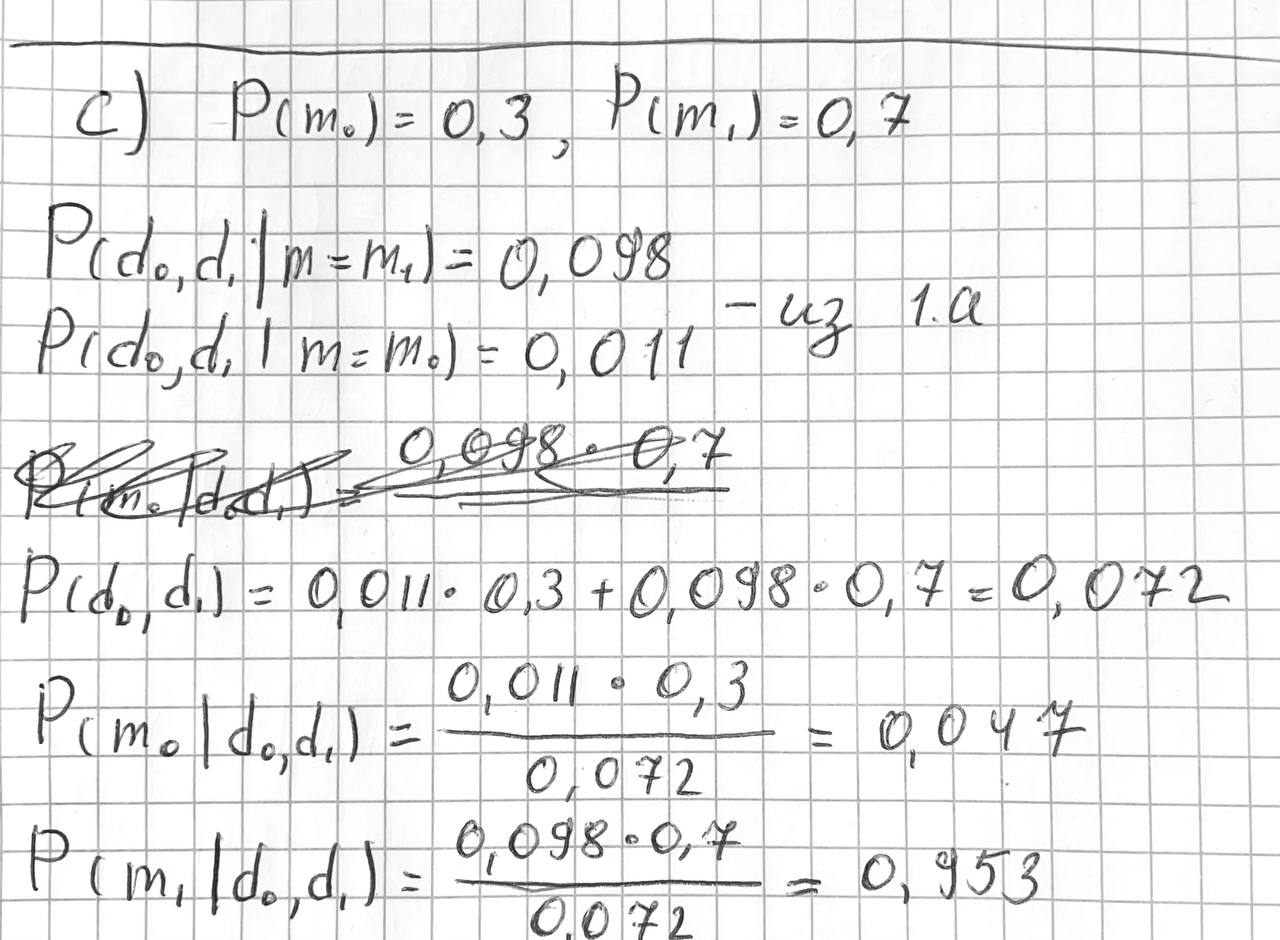 c) P(m₀) = 0,3, P(m₁) = 0,7
P(d₀,d₁|m=m₁) = 0,098
- из 1.a
P(d₀,d₁|m=m₀) = 0,011
P(m₀|d₀d₁) = 0,098·0,7
P(d₀,d₁) = 0,011·0,3+0,098·0,7=0,072
P(m₀|d₀,d₁) = 0,011·0,3 / 0,072 = 0,047
P(m₁|d₀,d₁) = 0,098·0,7 / 0,072 = 0,953